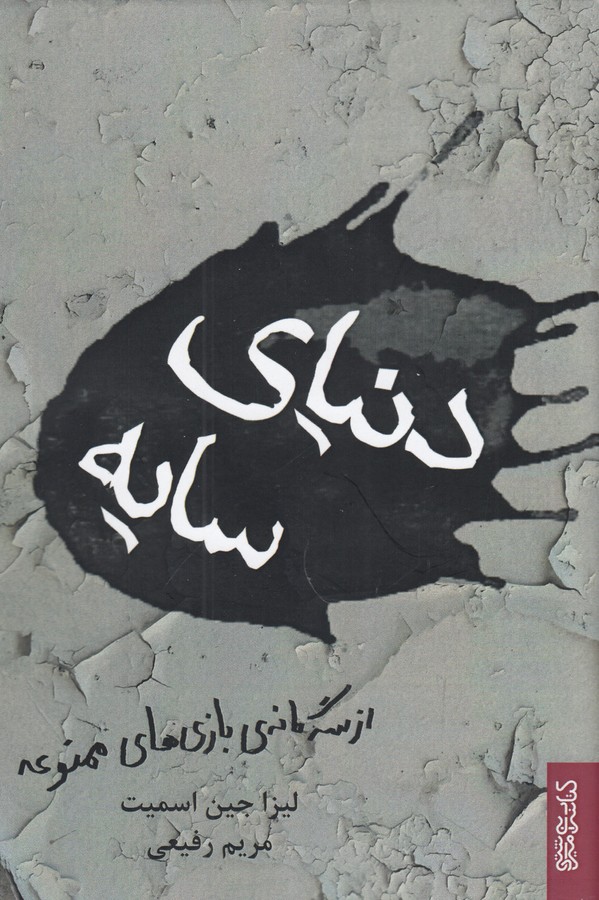 دنیای
سایه
از سه‌گانه‌ی بازی‌های ممنوعه
لیزا جین اسمیت
مریم رفیعی